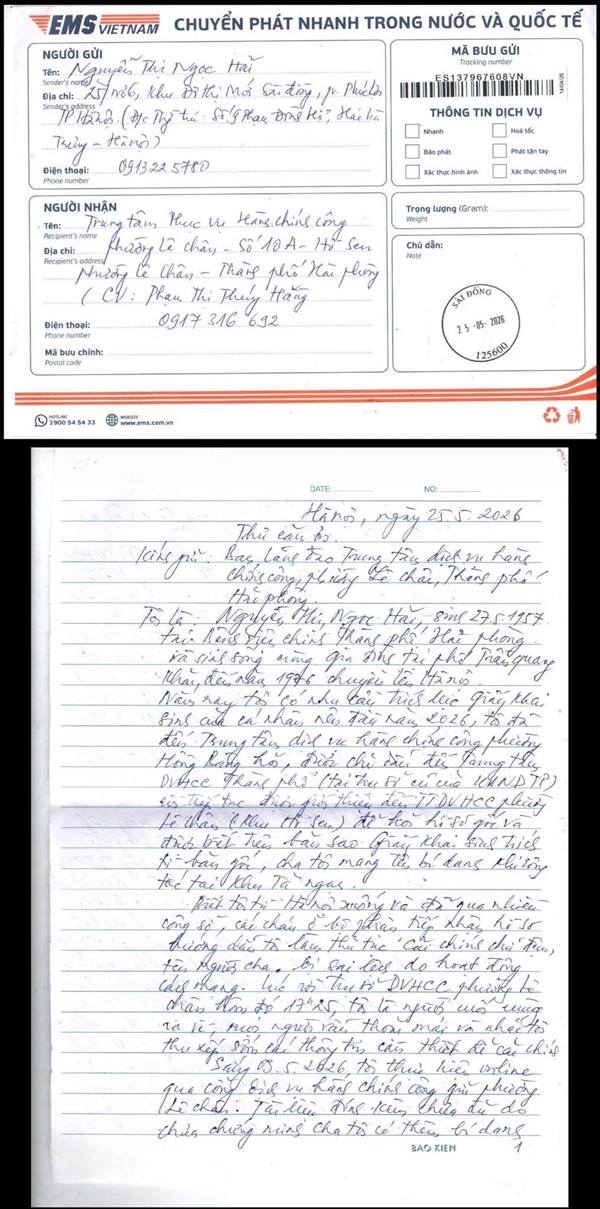 EMS VIETNAM
CHUYỂN PHÁT NHANH TRONG NƯỚC VÀ QUỐC TẾ
NGƯỜI GỬI
Tên: Nguyễn Thị Ngọc Hải
Sender's name
Địa chỉ: Khu Đô thị Mới Sài đồng, p. Phúc Lợi
Sender's address
TP Hà nội. (Đc Thư từ: Số 9 Phạm Đình Hổ, Hai bà
Trưng - Hà nội)
Điện thoại: 0913225780
Phone number
MÃ BƯU GỬI
Tracking number
ES137967608VN
THÔNG TIN DỊCH VỤ
Nhanh
Hoả tốc
Báo phát
Phát tận tay
Xác thực hình ảnh
Xác thực thông tin
NGƯỜI NHẬN
Tên: Trung tâm Phục vụ Hành chính công
Recipient's name
Địa chỉ: phường Lê chân - Số 10A - Hồ Sen
Recipient's address
phường Lê Chân - Thành phố Hải phòng
( CV: Phạm Thị Thúy Hằng
Điện thoại: 0917 316 692
Phone number
Mã bưu chính:
Postal code
Trọng lượng (Gram):
Weight
Chỉ dẫn:
Note
SAI ĐỒNG
25-05-2026
125600
HOTLINE
1900 54 54 33
WEBSITE
www.ems.com.vn
DATE:
NO:
Hà nội, ngày 25.5.2026
Thư cảm ơn.
Kính gửi: Ban lãnh đạo Trung tâm dịch vụ hành
chính công, phường Lê chân, Thành phố
Hải phòng.
Tôi là: Nguyễn Thị Ngọc Hải, sinh 27.5.1957
tại Bệnh viện chính Thành phố Hải phòng
và sinh sống cùng gia đình tại phố Trần quang
Khải, đến năm 1976 chuyển lên Hà nội.
Năm nay tôi có nhu cầu trích lục Giấy khai
sinh của cá nhân nên đầu năm 2026, tôi đã
đến Trung tâm dịch vụ hành chính công phường
Hồng Bàng hỏi, được chỉ dẫn đến Trung tâm
DVHCC Thành phố (tại trụ sở cũ của UBND TP)
rồi tiếp tục được giới thiệu đến TTDVHCC phường
Lê Chân (Khu Hồ Sen) để hỏi hồ sơ gốc và
được biết trên bản sao Giấy khai sinh trích
từ bản gốc, cha tôi mang tên bí danh
tại Khu Tả ngạn.
Biết tôi từ Hà nội xuống và đã qua nhiều
công sở, các cháu ở bộ phận tiếp nhận hồ sơ
hướng dẫn tôi làm thủ tục "Cải chính chữ đệm,
tên người cha" bị sai lệch do hoạt động
cách mạng. Lúc rời trụ sở DVHCC phường Lê
Chân hôm đó 17h25, tôi là người cuối cùng
ra về, mọi người vẫn thoải mái và nhắc tôi
thu xếp sớm các thông tin cần thiết để cải chính
Sáng 03.5.2026, tôi thực hiện online
qua cổng dịch vụ hành chính công gửi phường
Lê chân. Tài liệu đính kèm chưa đủ do
chưa chứng minh cha tôi có thêm bí danh
BAO KIEN
1